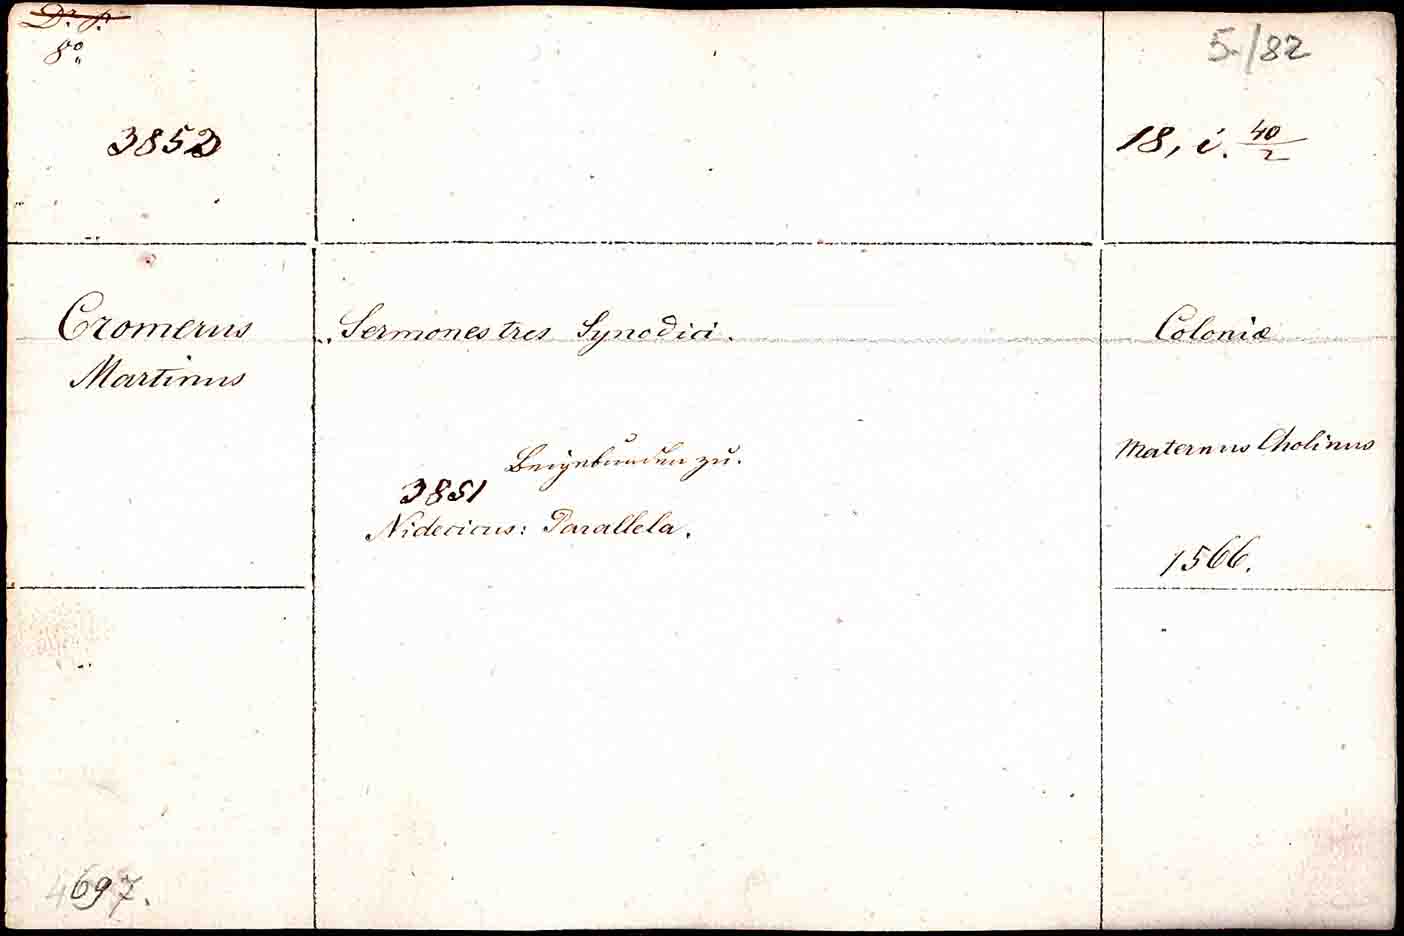 8º
3852
5./82
18, i. 40/2
Cromerus
Martinus
Sermones tres Synodici.
Beigebunden zu.
3851
Nidecicus: Parallela.
Coloniæ
Maternus Cholinus
1566.
4697.